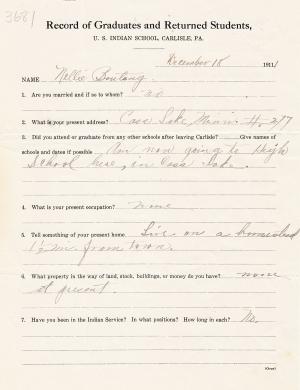 3681
Record of Graduates and Returned Students,
U. S. INDIAN SCHOOL, CARLISLE, PA.
December 18 1911
NAME Nellie Boutang.
1. Are you married and if so to whom? no
2. What is your present address? Cass Lake, Minn. #. 277
3. Did you attend or graduate from any other schools after leaving Carlisle? Give names of
schools and dates if possible Am now going to High
School here, in Cass Lake.
4. What is your present occupation? none
5. Tell something of your present home Live on a homestead
1½ m. from town.
6. What property in the way of land, stock, buildings, or money do you have? none
at present.
7. Have you been in the Indian Service? In what positions? How long in each? No.
(Over)